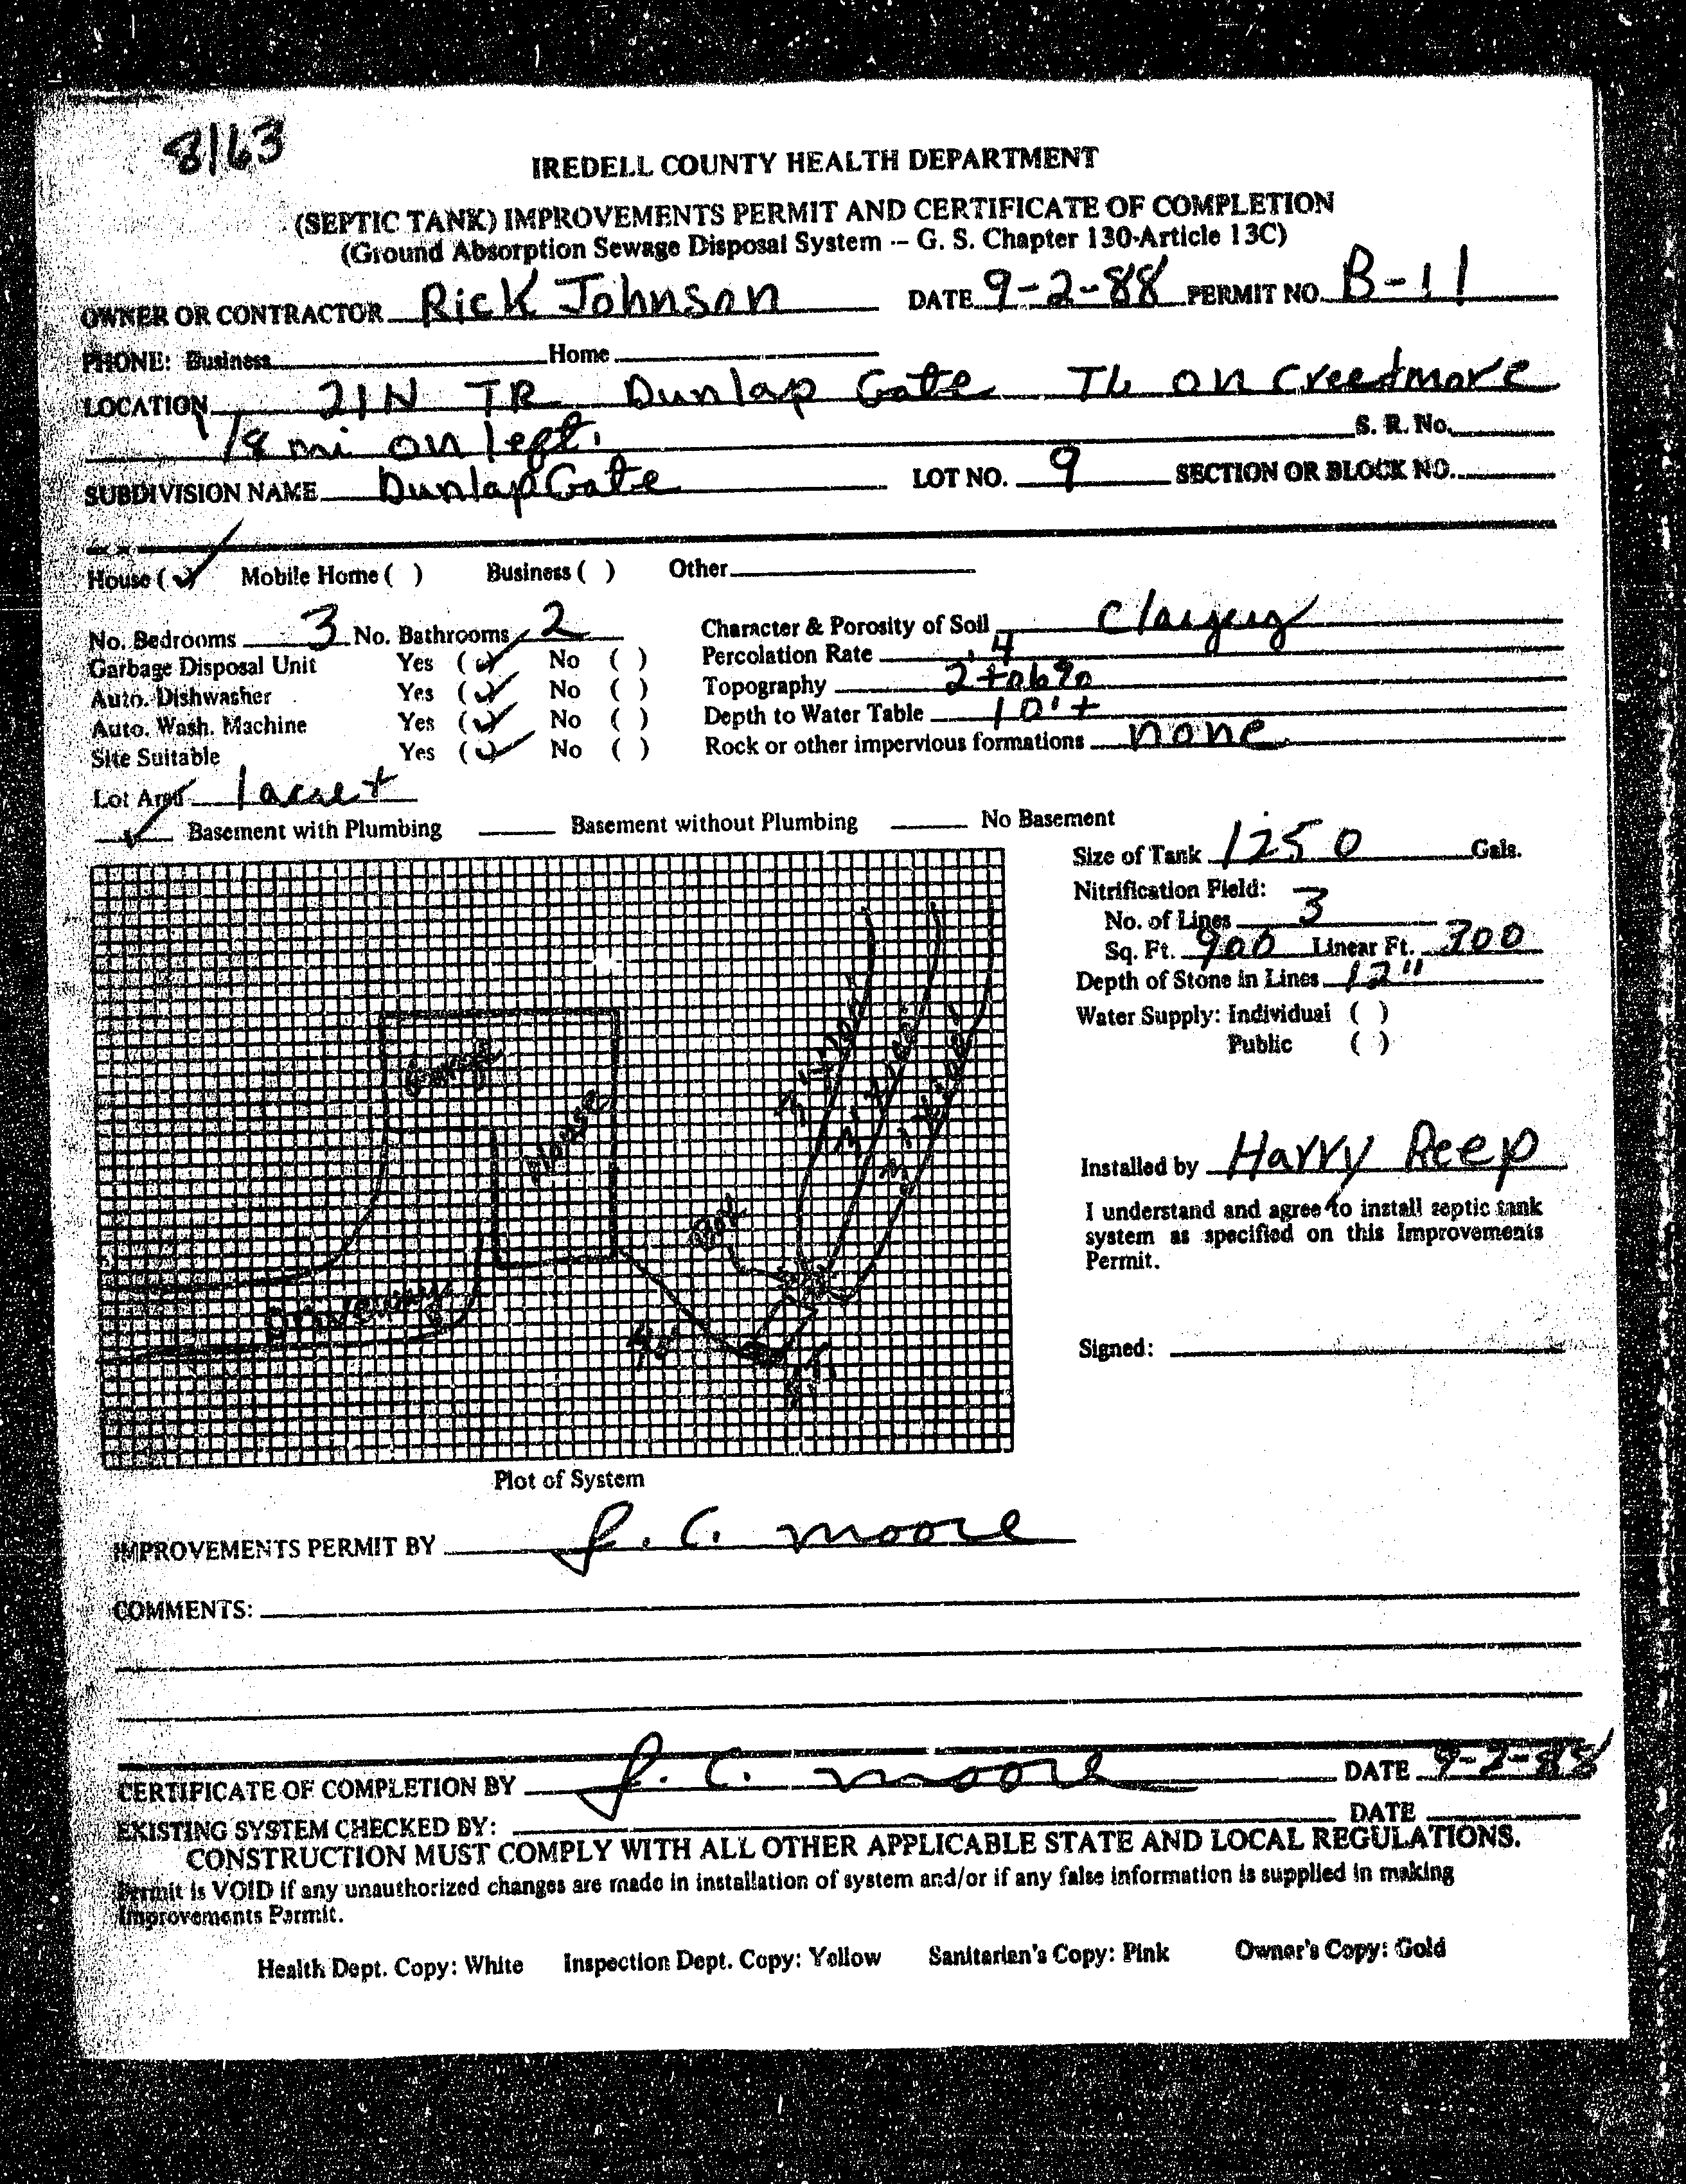 8163
IREDELL COUNTY HEALTH DEPARTMENT
(SEPTIC TANK) IMPROVEMENTS PERMIT AND CERTIFICATE OF COMPLETION
(Ground Absorption Sewage Disposal System -- G. S. Chapter 130-Article 13C)
OWNER OR CONTRACTOR Rick Johnson DATE 9-2-88 PERMIT NO. B-11
PHONE: Business Home
LOCATION 21N TR Dunlap Gate TL on Creedmore
1/8 mi on left. S. R. No.
SUBDIVISION NAME Dunlap Gate LOT NO. 9 SECTION OR BLOCK NO.
House (✓) Mobile Home ( ) Business ( ) Other
No. Bedrooms 3 No. Bathrooms 2 Character & Porosity of Soil Clayey
Garbage Disposal Unit Yes (✓) No ( ) Percolation Rate .4
Auto. Dishwasher Yes (✓) No ( ) Topography 2 to 6%
Auto. Wash. Machine Yes (✓) No ( ) Depth to Water Table 10'+
Site Suitable Yes (✓) No ( ) Rock or other impervious formations none
Lot Area 1 acre +
✓ Basement with Plumbing Basement without Plumbing No Basement
Size of Tank 1250 Gals.
Nitrification Field:
No. of Lines 3
Sq. Ft. 900 Linear Ft. 300
Depth of Stone in Lines 12"
Water Supply: Individual ( )
Public ( )
Garage
House
Box
Driveway
Installed by Harry Reep
I understand and agree to install septic tank
system as specified on this Improvements
Permit.
Signed:
Plot of System
IMPROVEMENTS PERMIT BY J. C. Moore
COMMENTS:
CERTIFICATE OF COMPLETION BY J. C. Moore DATE 9-2-88
EXISTING SYSTEM CHECKED BY: DATE
CONSTRUCTION MUST COMPLY WITH ALL OTHER APPLICABLE STATE AND LOCAL REGULATIONS.
Permit is VOID if any unauthorized changes are made in installation of system and/or if any false information is supplied in making
Improvements Permit.
Health Dept. Copy: White Inspection Dept. Copy: Yellow Sanitarian's Copy: Pink Owner's Copy: Gold